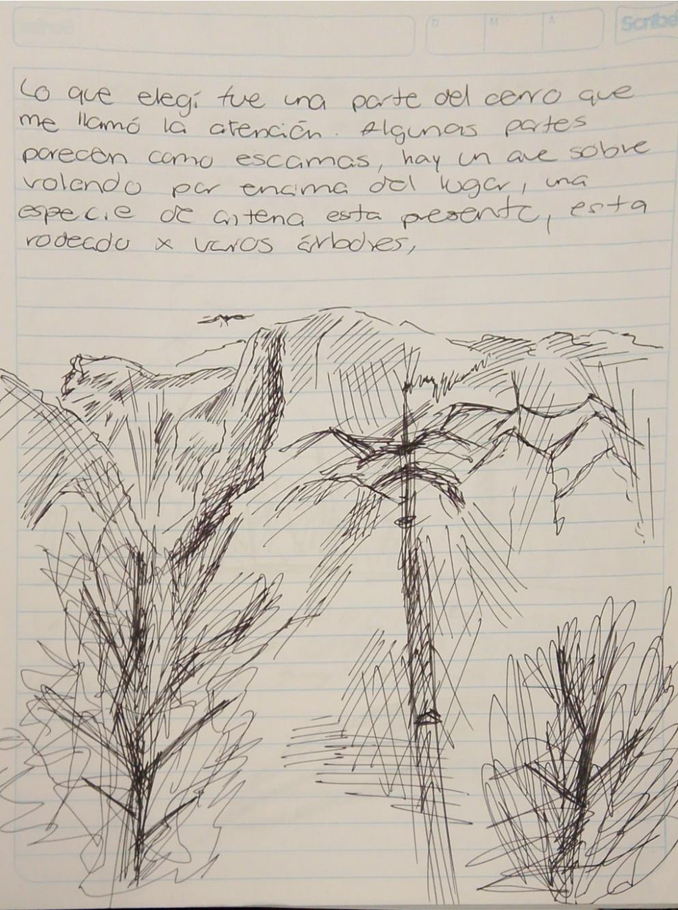 Scribe
Lo que elegí fue una parte del cerro que
me llamó la atención. Algunas partes
parecen como escamas, hay un ave sobre
volando por encima del lugar, una
especie de antena esta presente, esta
rodeado x varios árboles,